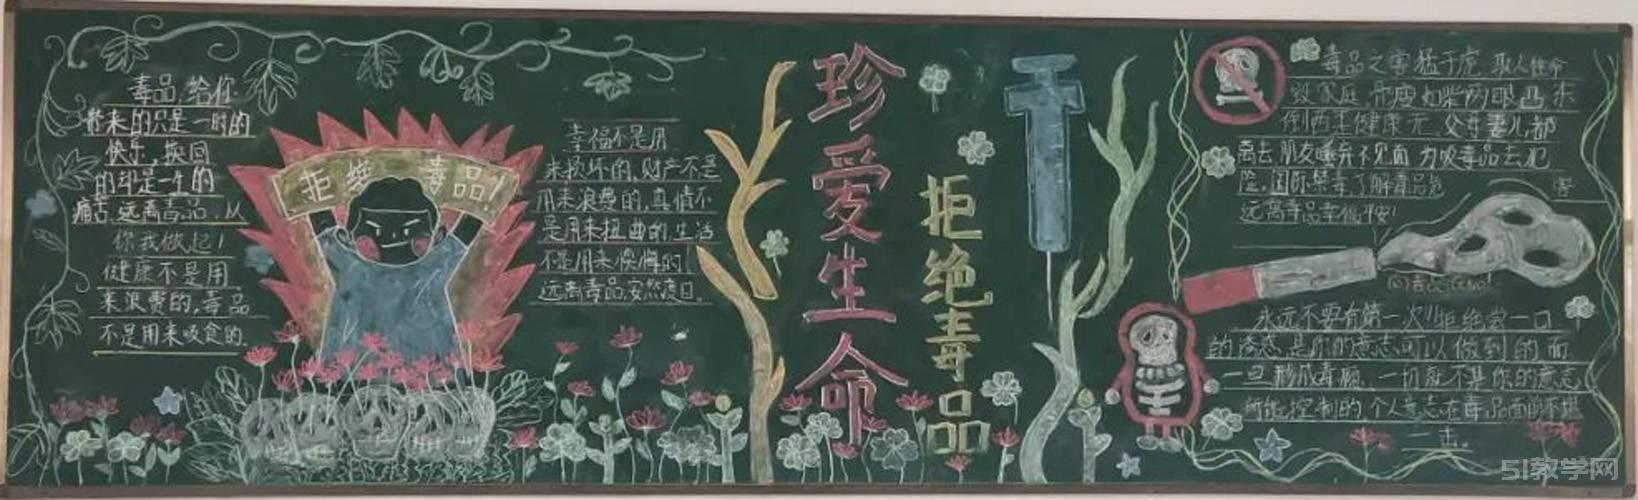 毒品,给你
带来的只是一时的
快乐,换回
的却是一生的
痛苦.远离毒品.从
你我做起!
健康不是用
来浪费的,毒品
不是用来吸食的.
拒绝毒品!
幸福不是用
来损坏的,财产不是
用来浪费的,真情不
是用来扭曲的生活
不是用来懊悔的!
远离毒品,安然度日.
珍爱生命
拒绝毒品
毒品之害猛于虎 取人性命
毁家庭,骨瘦如柴两眼凸 东
倒西歪健康无 父母妻儿都
离去朋友唾弃不见面 为吸毒品去犯
险.国际禁毒了解毒品危害
远离毒品幸福平安!
永远不要有第一次!!拒绝尝一口
的诱惑是你的意志可以做到的而
一旦形成毒瘾.一切就不是你的意志
所能控制的.个人意志在毒品面前不堪
一击。
51教学网